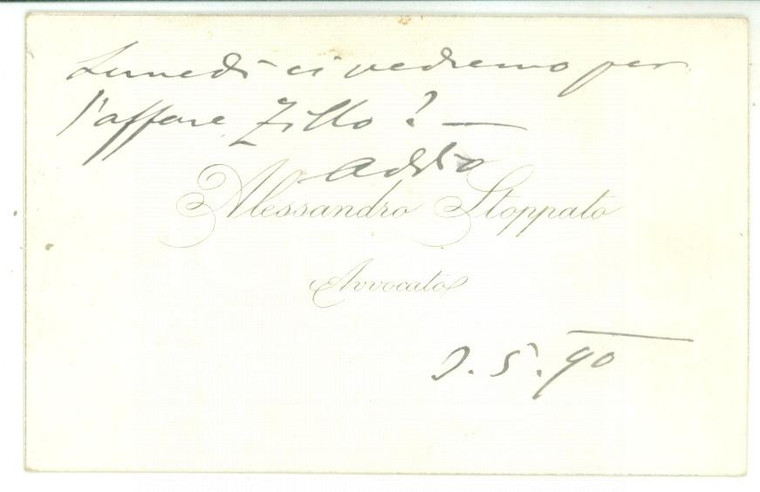 Lunedì ci vedremo per
l'affare Zillo? —
addio
Alessandro Stoppato
Avvocato
2.5.90